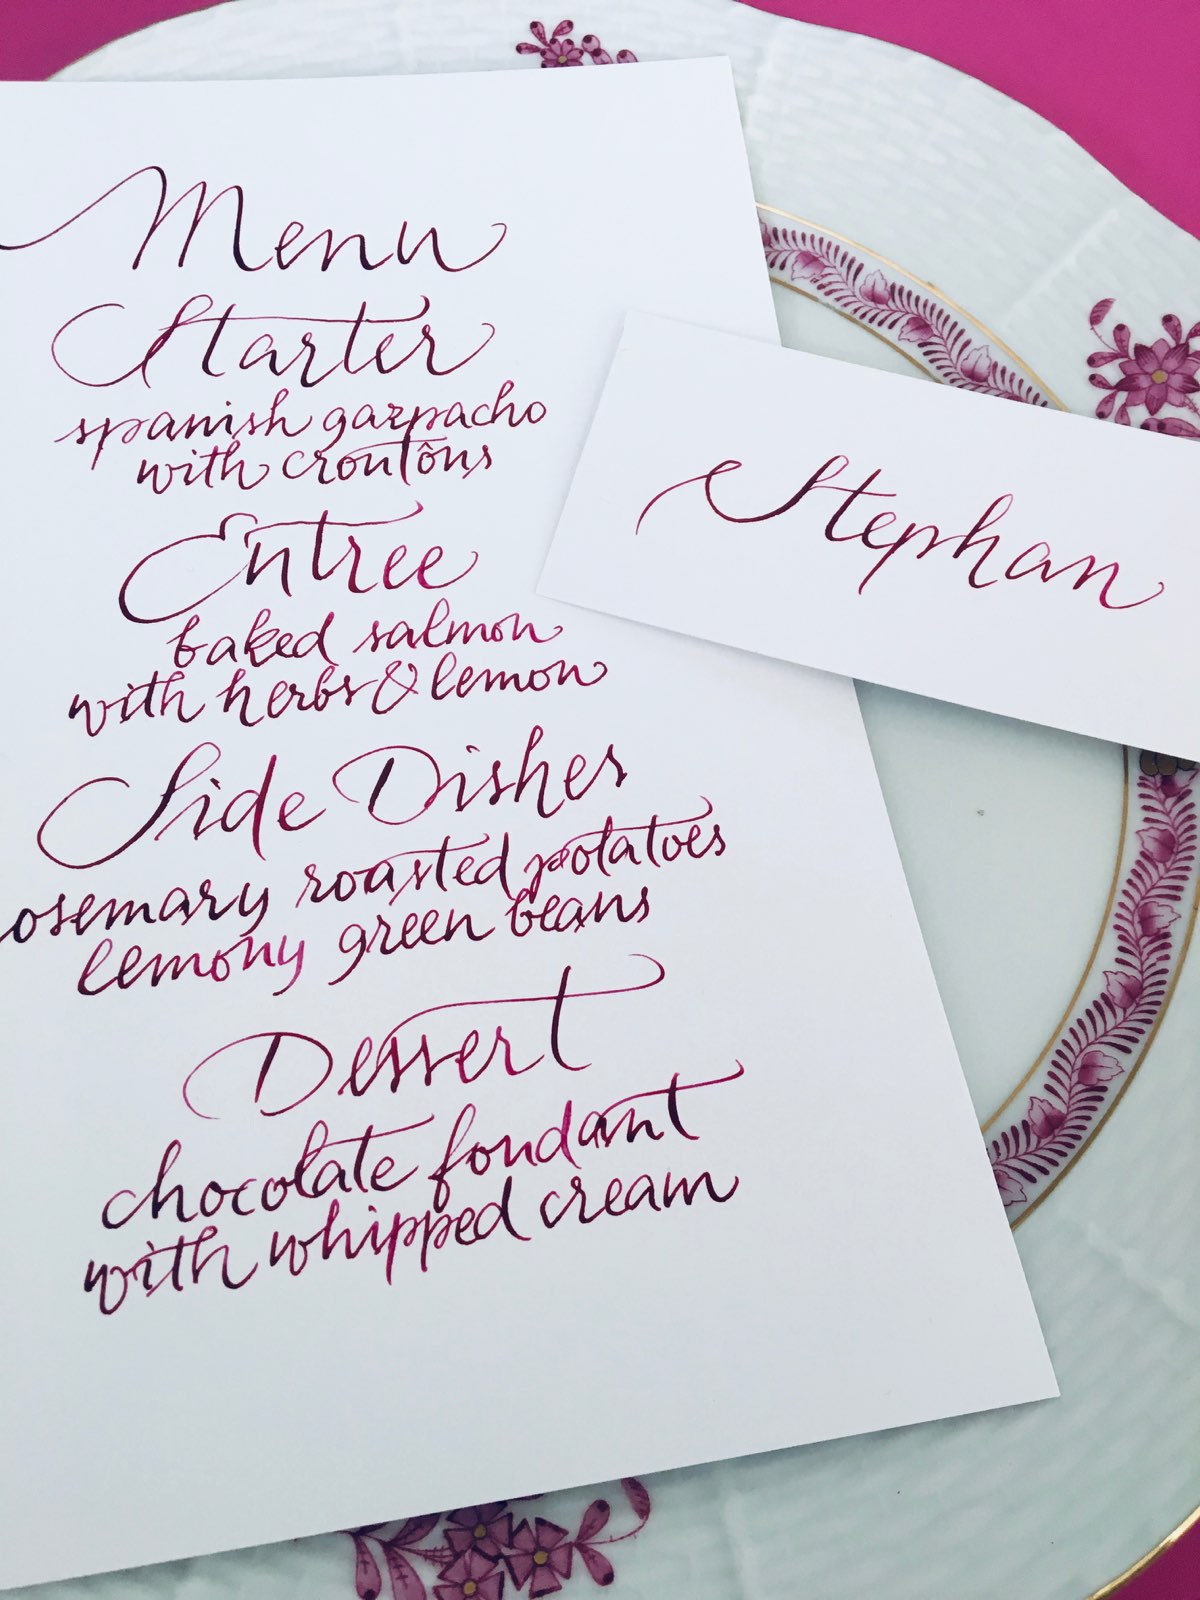 Menu
Starter
spanish gazpacho
with croutôns
Entree
baked salmon
with herbs & lemon
Side Dishes
osemary roasted potatoes
lemony green beans
Dessert
chocolate fondant
with whipped cream
Stephan